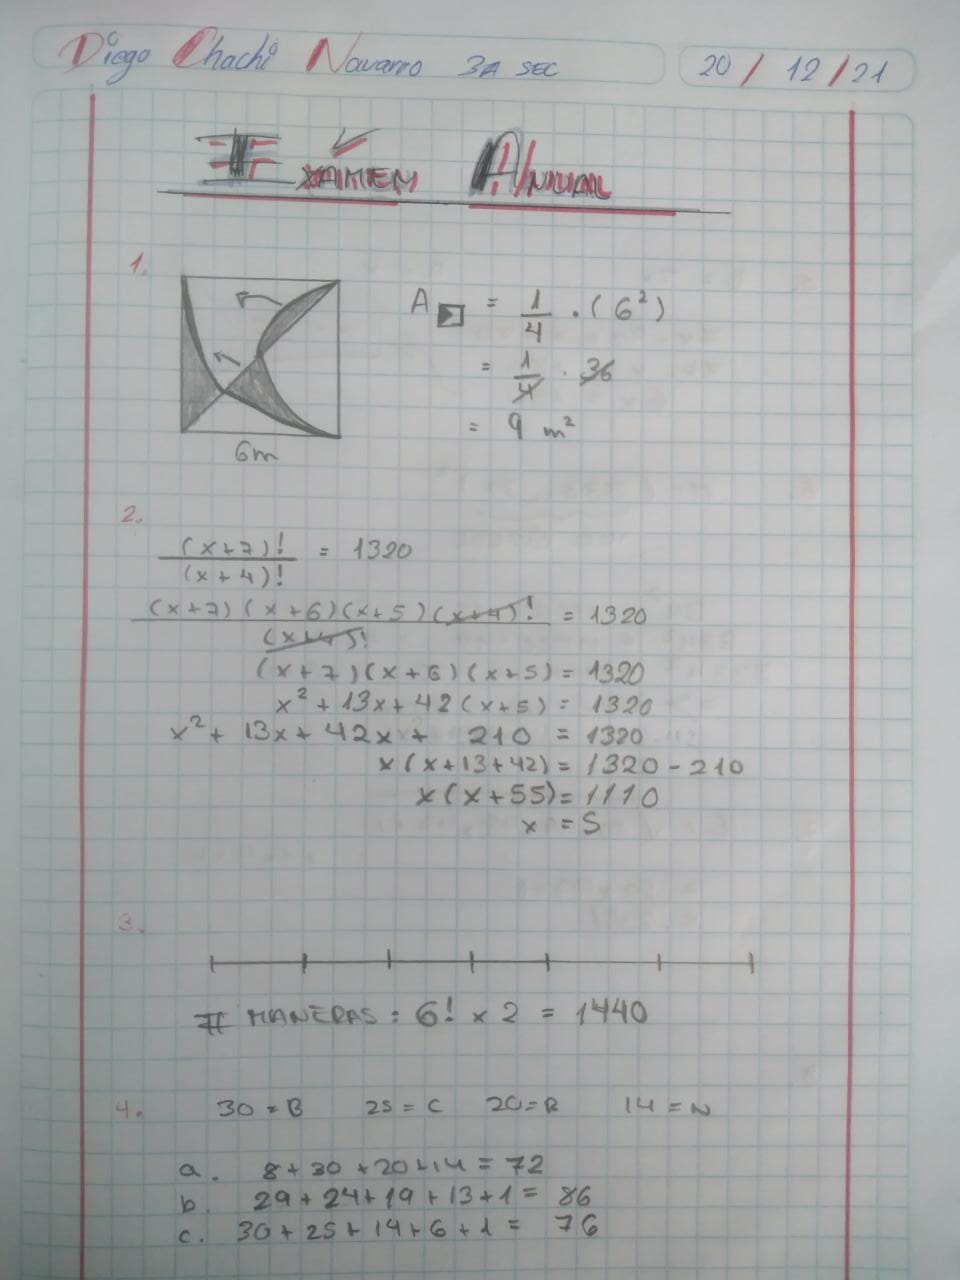 Diego Chachi Navarro 3A SEC 20 / 12 / 21
EXAMEN ANUAL
1.
A = 1/4 . (6²)
= 1/4 . 36
= 9 m²
6m
2.
(x+7)! / (x+4)! = 1320
(x+7)(x+6)(x+5)(x+4)! / (x+4)! = 1320
(x+7)(x+6)(x+5) = 1320
x² + 13x + 42(x+5) = 1320
x² + 13x + 42x + 210 = 1320
x(x+13+42) = 1320 - 210
x(x+55) = 1110
x = 5
3.
# MANERAS : 6! x 2 = 1440
4. 30 = B 25 = C 20 = R 14 = N
a. 8 + 30 + 20 + 14 = 72
b. 29 + 24 + 19 + 13 + 1 = 86
c. 30 + 25 + 14 + 6 + 1 = 76